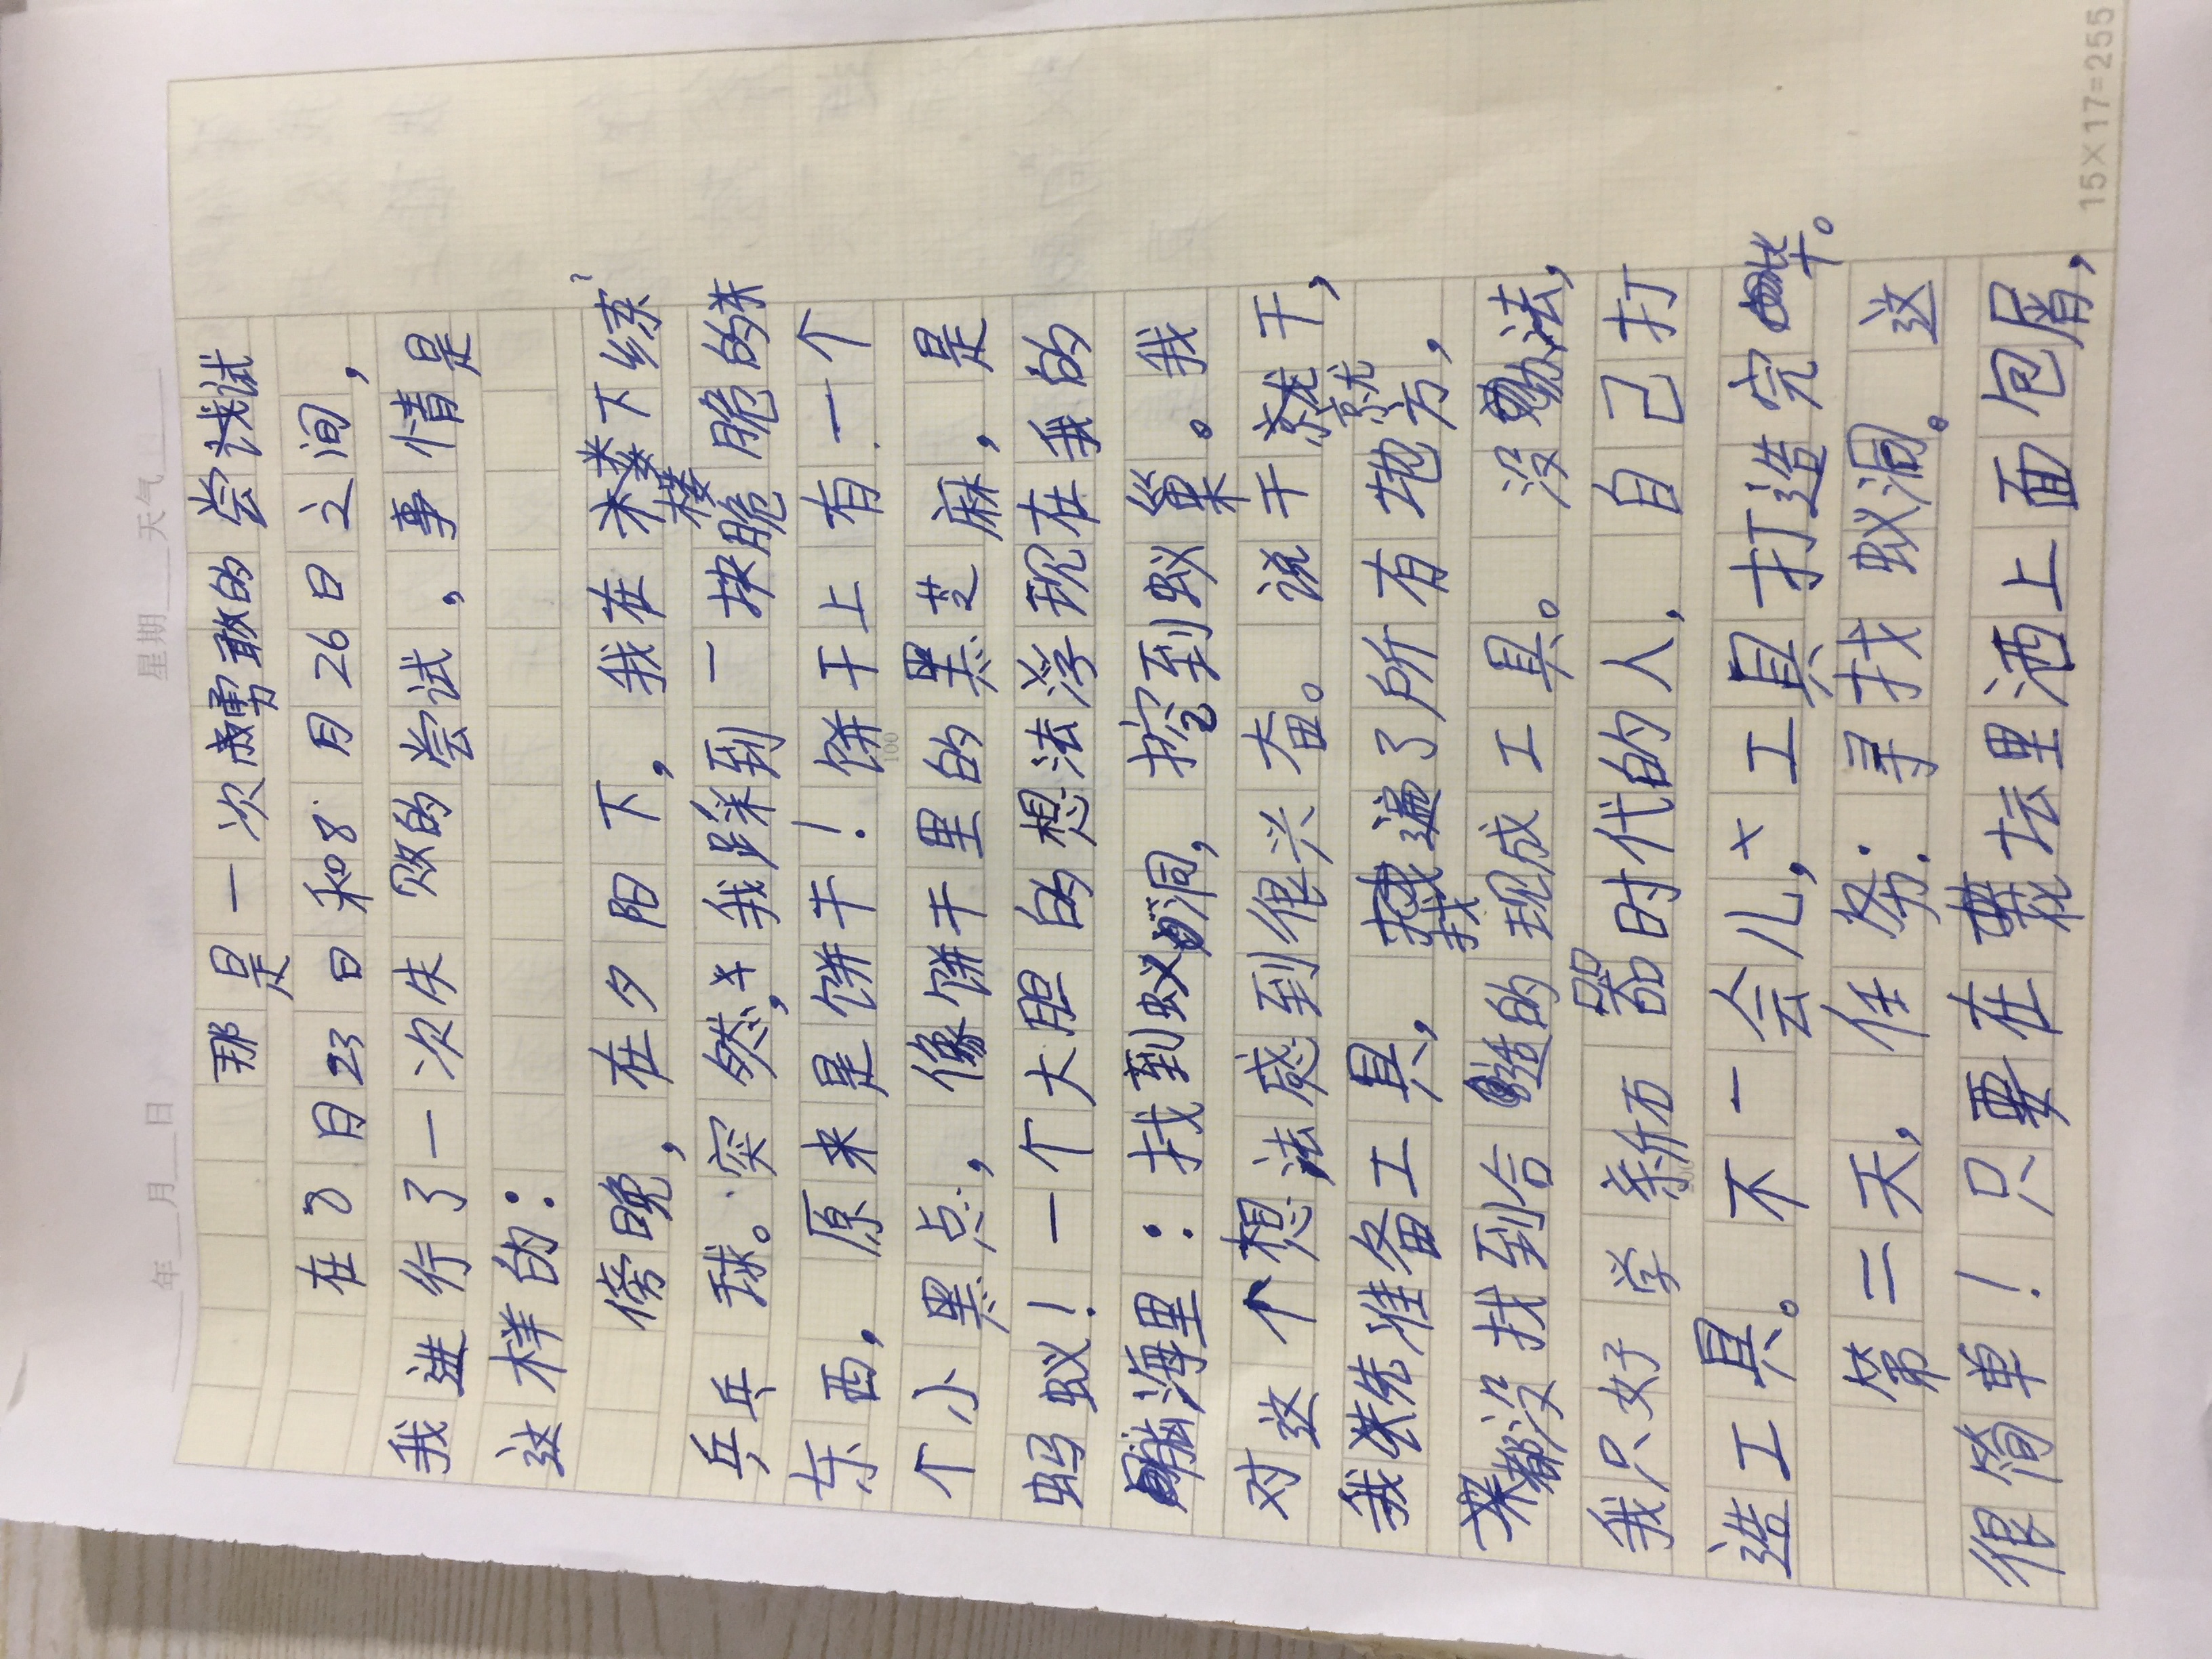 年 月 日 星期 天气
那是一次勇敢的尝试
在8月23日和8月26日之间，
我进行了一次失败的尝试，事情是
这样的：
傍晚，在夕阳下，我在楼下练
乒乓球。突然，我踩到一块脆脆的
东西，原来是饼干！饼干上有一个
个小黑点，像饼干里的黑芝麻，是
蚂蚁！一个大胆的想法浮现在我的
脑海里：找到蚁洞，挖到蚁巢。我
对这个想法感到很兴奋。说干就干，
我先准备工具，找遍了所有地方，
都没找到合造的现成工具。没办法，
我只好学新石器时代的人，自己打
造工具。不一会儿，工具打造完毕。
第二天，任务：寻找蚁洞。这
很简单！只要在花坛里洒上面包屑，
15×17=255